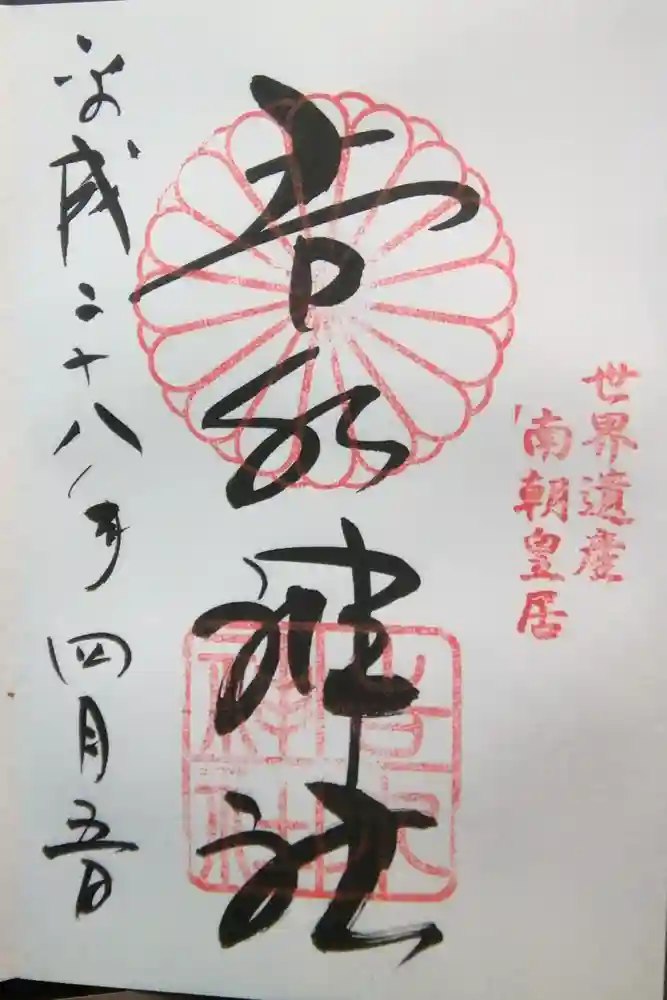 世界遺産
「南朝皇居
吉水神社
吉水神社
平成二十八年四月五日